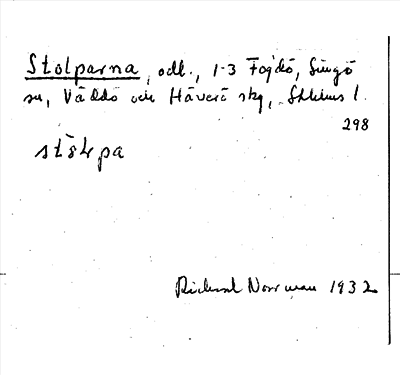 Stolparna, odl., 1-3 Fogdö, Singö
sn, Väddö och Häverö skg, Sthlms l.
298
stålpa
Richard Norrman 1932